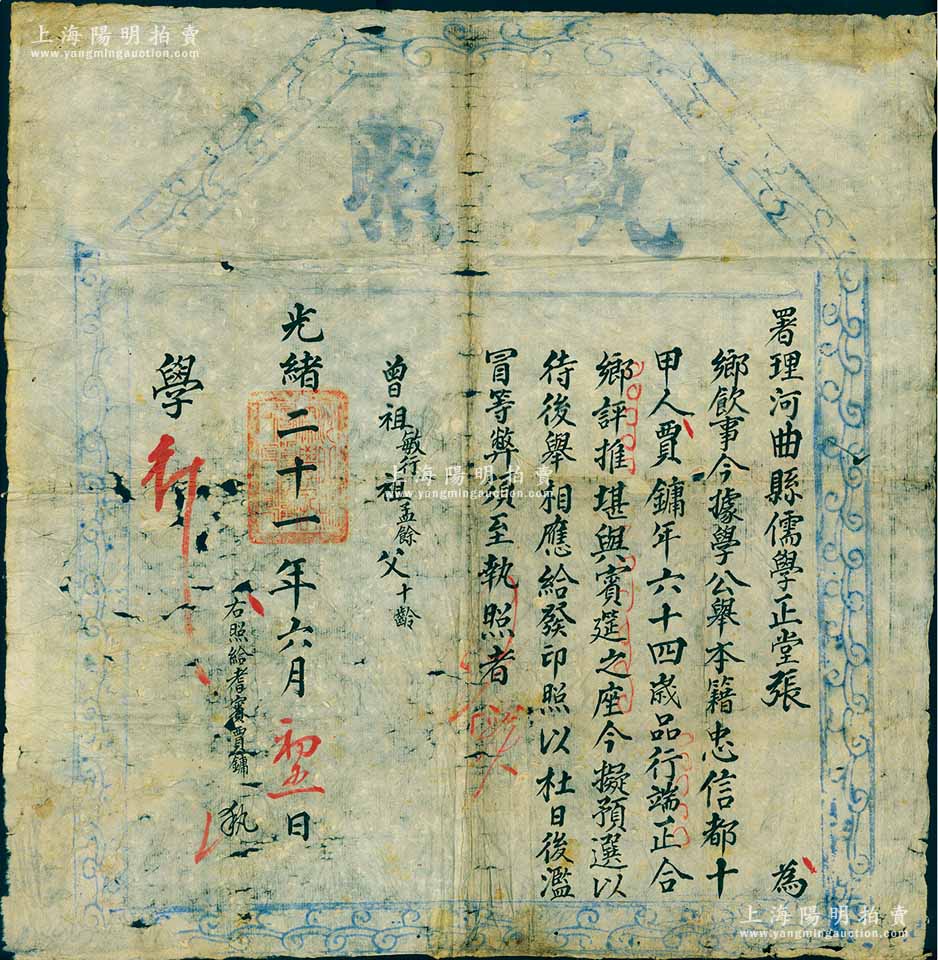 上海陽明拍賣
www.yangmingauction.com
上海陽明拍賣
www.yangmingauction.com
執照
署理河曲縣儒學正堂張 為
鄉飲事今據學公舉本籍忠信都十
甲人賈鏞年六十四歲品行端正合
鄉評推堪與賓筵之座今擬預選以
待後舉相應給發印照以杜日後濫
冒等弊須至執照者
曾祖敏行 祖孟餘 父十齡
光緒二十一年六月初五日
右照給耆賓賈鏞 執
學
上海陽明拍賣
www.yangmingauction.com
上海陽明拍賣
www.yangmingauction.com